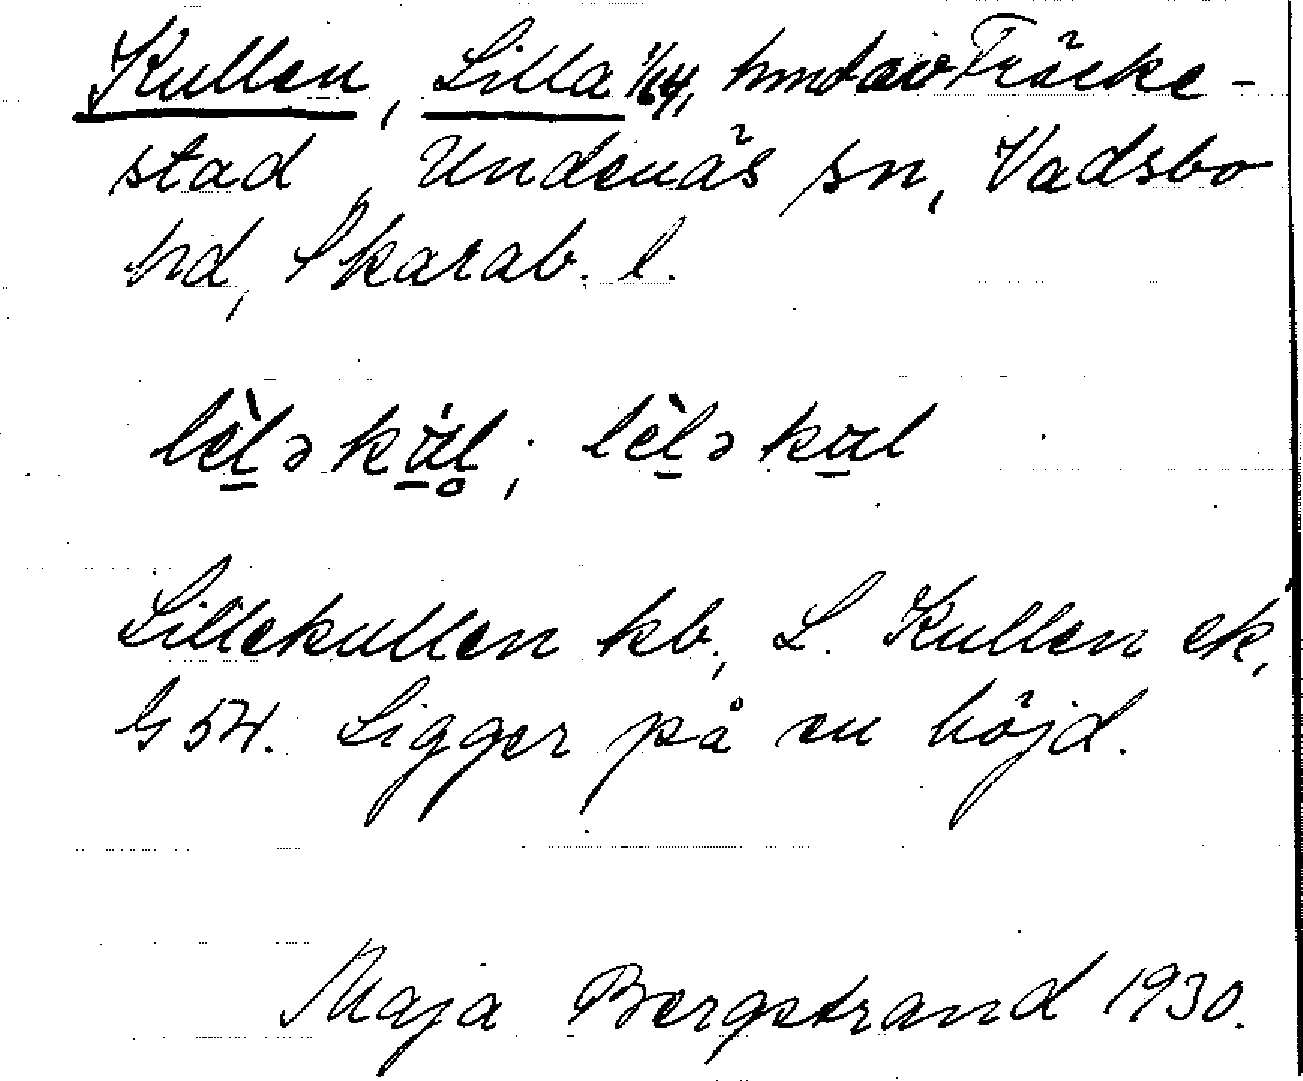 Kullen, Lilla 1/64, hmd av Fräcke-
stad, Undenäs sn, Vadsbo
hd, Skarab. l.
Lillekullen kb., L. Kullen ek,
G 54. Ligger på en höjd.
Maja Bergstrand 1930.